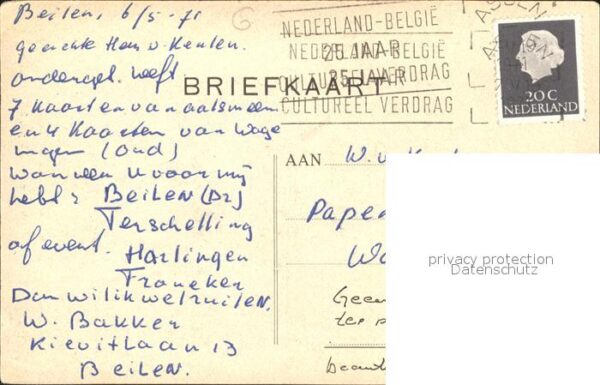 Beilen, 6/5-71
geachte Heer v. Keulen.
ondergel. heeft
7 Kaarten van aalsmeer
en 4 Kaarten van Wage
ningen (oud)
Wanneer u voor mij
hebt: Beilen (Dr)
Terschelling
of event. Harlingen
Franeker
Dan wil ik wel ruilen.
W. Bakker
Kievitlaan 13
Beilen.
NEDERLAND-BELGIË
NEDERLAND-BELGIË
25 JAAR
25 JAAR
CULTUREEL VERDRAG
CULTUREEL VERDRAG
BRIEFKAART
ASSEN
ASSEN
20 C
NEDERLAND
AAN W. v.
Geen
privacy protection
Datenschutz